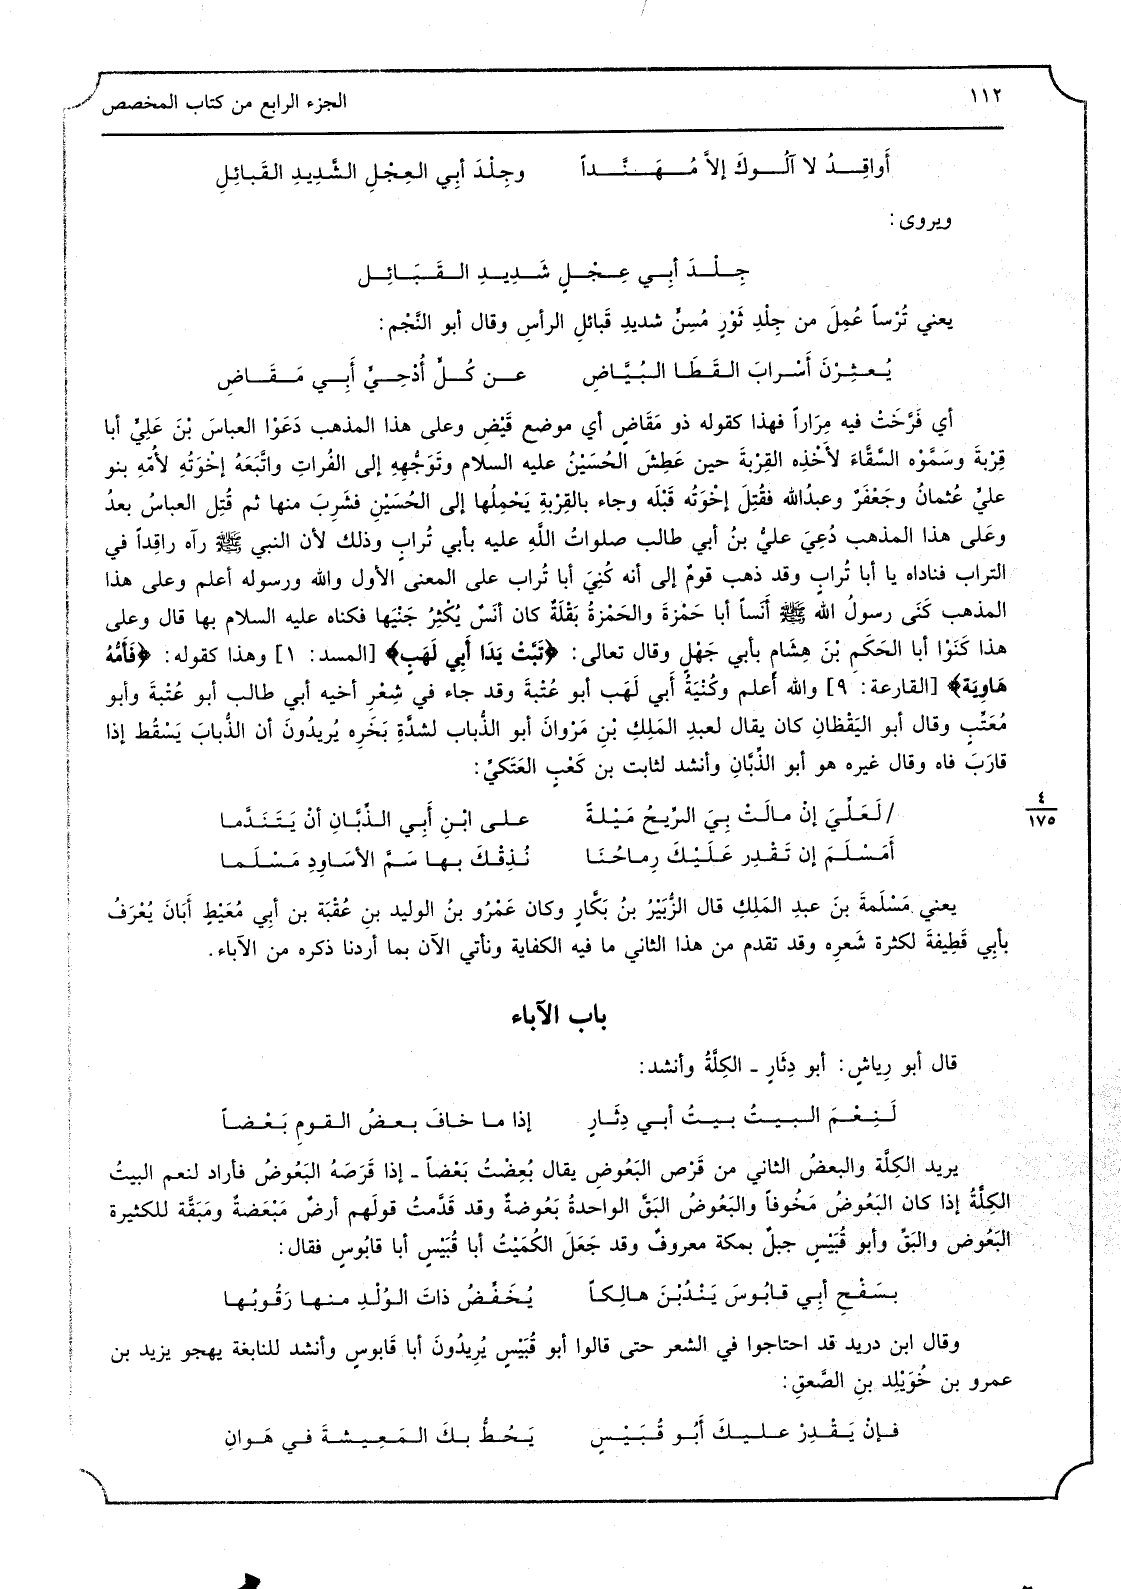 ١١٢
الجزء الرابع من كتاب المخصص
أَواقِـدُ لا آلُـوكَ إلاَّ مُـهَـنَّـداً وجِلْدَ أبِي العِجْلِ الشَّدِيدِ القَبائِلِ
ويروى:
جِـلْـدَ أبِـي عِـجْـلٍ شَـدِيـدِ الـقَـبَـائِـل
يعني تُرْساً عُمِلَ من جِلْدِ ثَوْرٍ مُسِنٍّ شديدِ قَبائلِ الرأس وقال أبو النَّجْم:
يُـعـثِـرْنَ أسْـرابَ الـقَـطَـا الـبُـيَّـاضِ عـن كُـلِّ أُدْحِـيٍّ أَبِـي مَـقَـاضِ
أي فَرَّخَتْ فيه مِرَاراً فهذا كقوله ذو مَقَاضٍ أي موضع قَيْضٍ وعلى هذا المذهب دَعَوْا العباسَ بْنَ عَلِيٍّ أبا
قِرْبةَ وسَمَّوْه السَّقَّاءَ لأَخْذِه القِرْبةَ حين عَطِشَ الحُسَيْنُ عليه السلام وتَوَجُّهِهِ إلى الفُراتِ واتَّبَعَهُ إخْوَتُهِ لأمِّهِ بنو
عليٍّ عُثمانُ وجَعْفَرٌ وعبدُالله فقُتِلَ إخْوَتُه قَبْلَه وجاء بالقِرْبةِ يَحْمِلُها إلى الحُسَيْنِ فشَرِبَ منها ثم قُتِل العباسُ بعدُ
وعَلى هذا المذهب دُعِيَ عليُّ بنُ أبي طالب صلواتُ اللَّهِ عليه بأبي تُرابٍ وذلك لأن النبي ﷺ رآه راقِداً في
التراب فناداه يا أبا تُرابٍ وقد ذهب قومٌ إلى أنه كُنِيَ أبا تُراب على المعنى الأول والله ورسوله أعلم وعلى هذا
المذهب كَنَى رسولُ الله ﷺ أَنَساً أبا حَمْزةَ والحَمْزةُ بَقْلَةٌ كان أنَسٌ يُكْثِرُ جَنْيَها فكناه عليه السلام بها قال وعلى
هذا كَنَوْا أبا الحَكَم بْنَ هِشَامٍ بأبي جَهْلٍ وقال تعالى: ﴿تَبَّتْ يَدَا أَبِي لَهَبٍ﴾ [المسد: ١] وهذا كقوله: ﴿فَأُمُّهُ
هَاوِيَة﴾ [القارعة: ٩] والله أَعلم وكُنْيَةُ أَبي لَهَب أبو عُتْبةَ وقد جاء في شِعْرِ أخيه أبي طالب أبو عُتْبةَ وأبو
مُعَتِّبٍ وقال أبو اليَقْظانِ كان يقال لعبدِ المَلِكِ بْنِ مَرْوانَ أبو الذُّباب لشدَّةِ بَخَرِه يُرِيدُونَ أن الذُّبابَ يَسْقُط إذا
قارَبَ فاه وقال غيره هو أبو الذِّبَّانِ وأنشد لثابت بن كَعْبٍ العَتَكيِّ:
٤
١٧٥
/لَعَلِّيَ إنْ مالَتْ بِيَ الرِّيحُ مَيْلةً على ابْنِ أَبِي الذِّبَّانِ أنْ يَتَنَدَّما
أَمَسْلَمَ إن تَقْدِر عَلَيْكَ رِماحُنَا نُذِقْكَ بها سَمَّ الأسَاودِ مَسْلَما
يعني مَسْلَمةَ بنَ عبدِ المَلِكِ قال الزُّبَيْرُ بنُ بَكَّارٍ وكان عَمْرُو بنُ الوليد بنِ عُقْبَة بن أبي مُعَيْطٍ أَبَانَ يُعْرَفُ
بأبِي قَطِيفةَ لكثرة شَعرِه وقد تقدم من هذا الثاني ما فيه الكفاية ونأتي الآن بما أردنا ذكره من الآباء.
باب الآباء
قال أبو رِياشٍ: أبو دِثَارٍ ـ الكِلَّةُ وأنشد:
لَـنِـعْـمَ الـبـيـتُ بـيـتُ أبـي دِثَـارٍ إذا مـا خـافَ بـعـضُ الـقـومِ بَـعْـضـاً
يريد الكِلَّة والبعضُ الثاني من قَرْص البَعُوضِ يقال بُعِضْتُ بَعْضاً ـ إذا قَرَصَهُ البَعُوضُ فأراد لنعم البيتُ
الكِلَّةُ إذا كان البَعُوضُ مَخُوفاً والبَعُوضُ البَقَّ الواحدةُ بَعُوضةٌ وقد قَدَّمتُ قولَهم أرضٌ مَبْعَضةٌ ومَبَقَّة للكثيرة
البَعُوض والبَقِّ وأبو قُبَيْسٍ جبلٌ بمكة معروفٌ وقد جَعَلَ الكُمَيْتُ أبا قُبَيْسٍ أبا قابُوسٍ فقال:
بسَفْحِ أبِي قابُوسَ يَنْدُبْنَ هالِكاً يُخَفِّضُ ذاتَ الوُلْدِ منها رَقُوبُها
وقال ابن دريد قد احتاجوا في الشعر حتى قالوا أبو قُبَيْسٍ يُرِيدُونَ أبا قَابوسٍ وأنشد للنابغة يهجو يزيد بن
عمرو بن خُوَيْلِد بنِ الصَّعقِ:
فـإنْ يَـقْـدِرْ عـلـيـكَ أَبُـو قُـبَـيْـسٍ يَـحُـطُّ بـكَ الـمَـعِـيـشـةَ فـي هَـوانِ